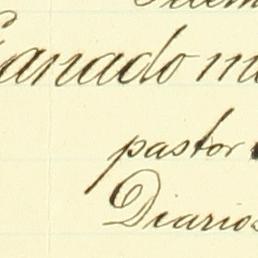 Ganado m
pastor
Diarios